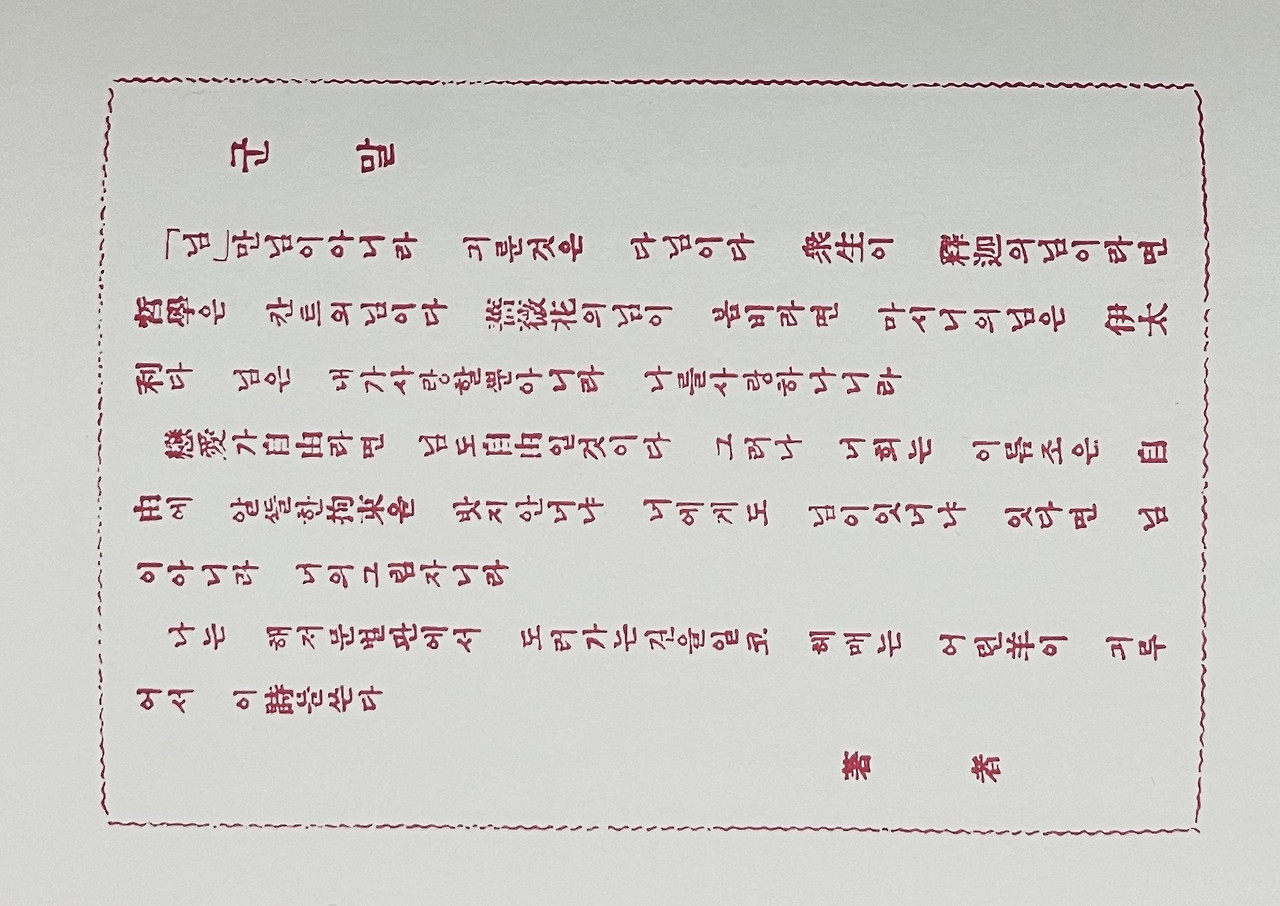 군말
「님」만님이아니라 긔룬것은 다님이다 衆生이 釋迦의님이라면
哲學은 칸트의님이다 薔薇花의님이 봄비라면 마시니의님은 伊太
利다 님은 내가사랑할ᄲᅮᆫ아니라 나를사랑하나니라
戀愛가自由라면 님도自由일것이다 그러나 너희는 이름조은 自
由에 알ᄯᅳᆯ한拘束을 밧지안너냐 너에게도 님이잇너냐 잇다면 님
이아니라 너의그림자니라
나는 해저문벌판에서 도러가는길을일코 헤매는 어린羊이 긔루
어서 이詩를쓴다
著者